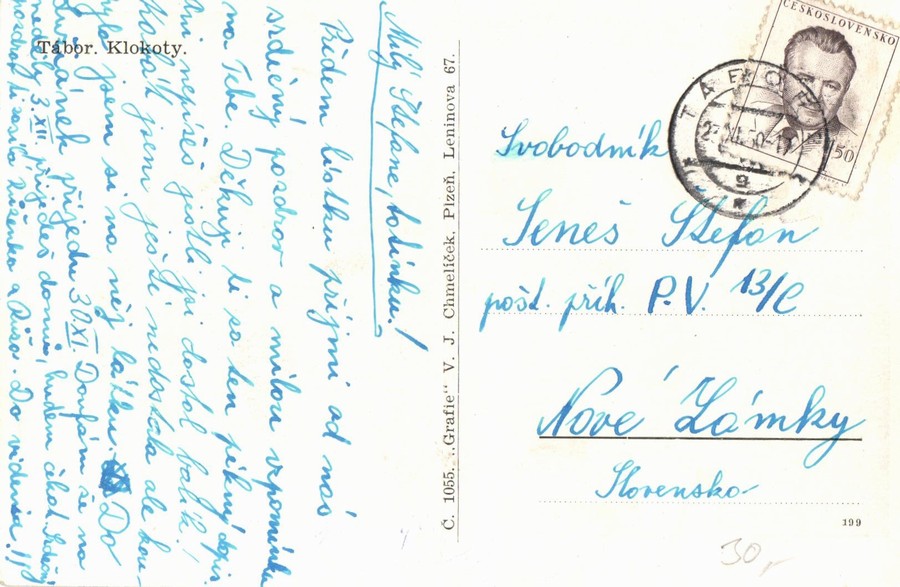 Tábor. Klokoty.
Milý Štefane, tatínku!
Předem lístku přijmi od nás
srdečný pozdrav a milou vzpomínku
na Tebe. Děkuji ti za ten pěkný dopis
Ani nepíšeš jestli jsi dostal balík!
kabát jsem ještě nedostala ale kou-
pila jsem si na něj látku. Do
přijedu 30 XI. Doufám že na
neděly 3. XII. přijdeš domů, budem čekat. Srdečný
pozdrav ti zasílá Růženka a Do videnia!
Č. 1055. „Grafie" V. J. Chmelíček, Plzeň, Leninova 67.
ČESKOSLOVENSKO
1,50
TÁBOR
Svobodník
Jeneš Štefan
pošt. přih. P.V. 13/C
Nové Zámky
Slovensko
199
30,-